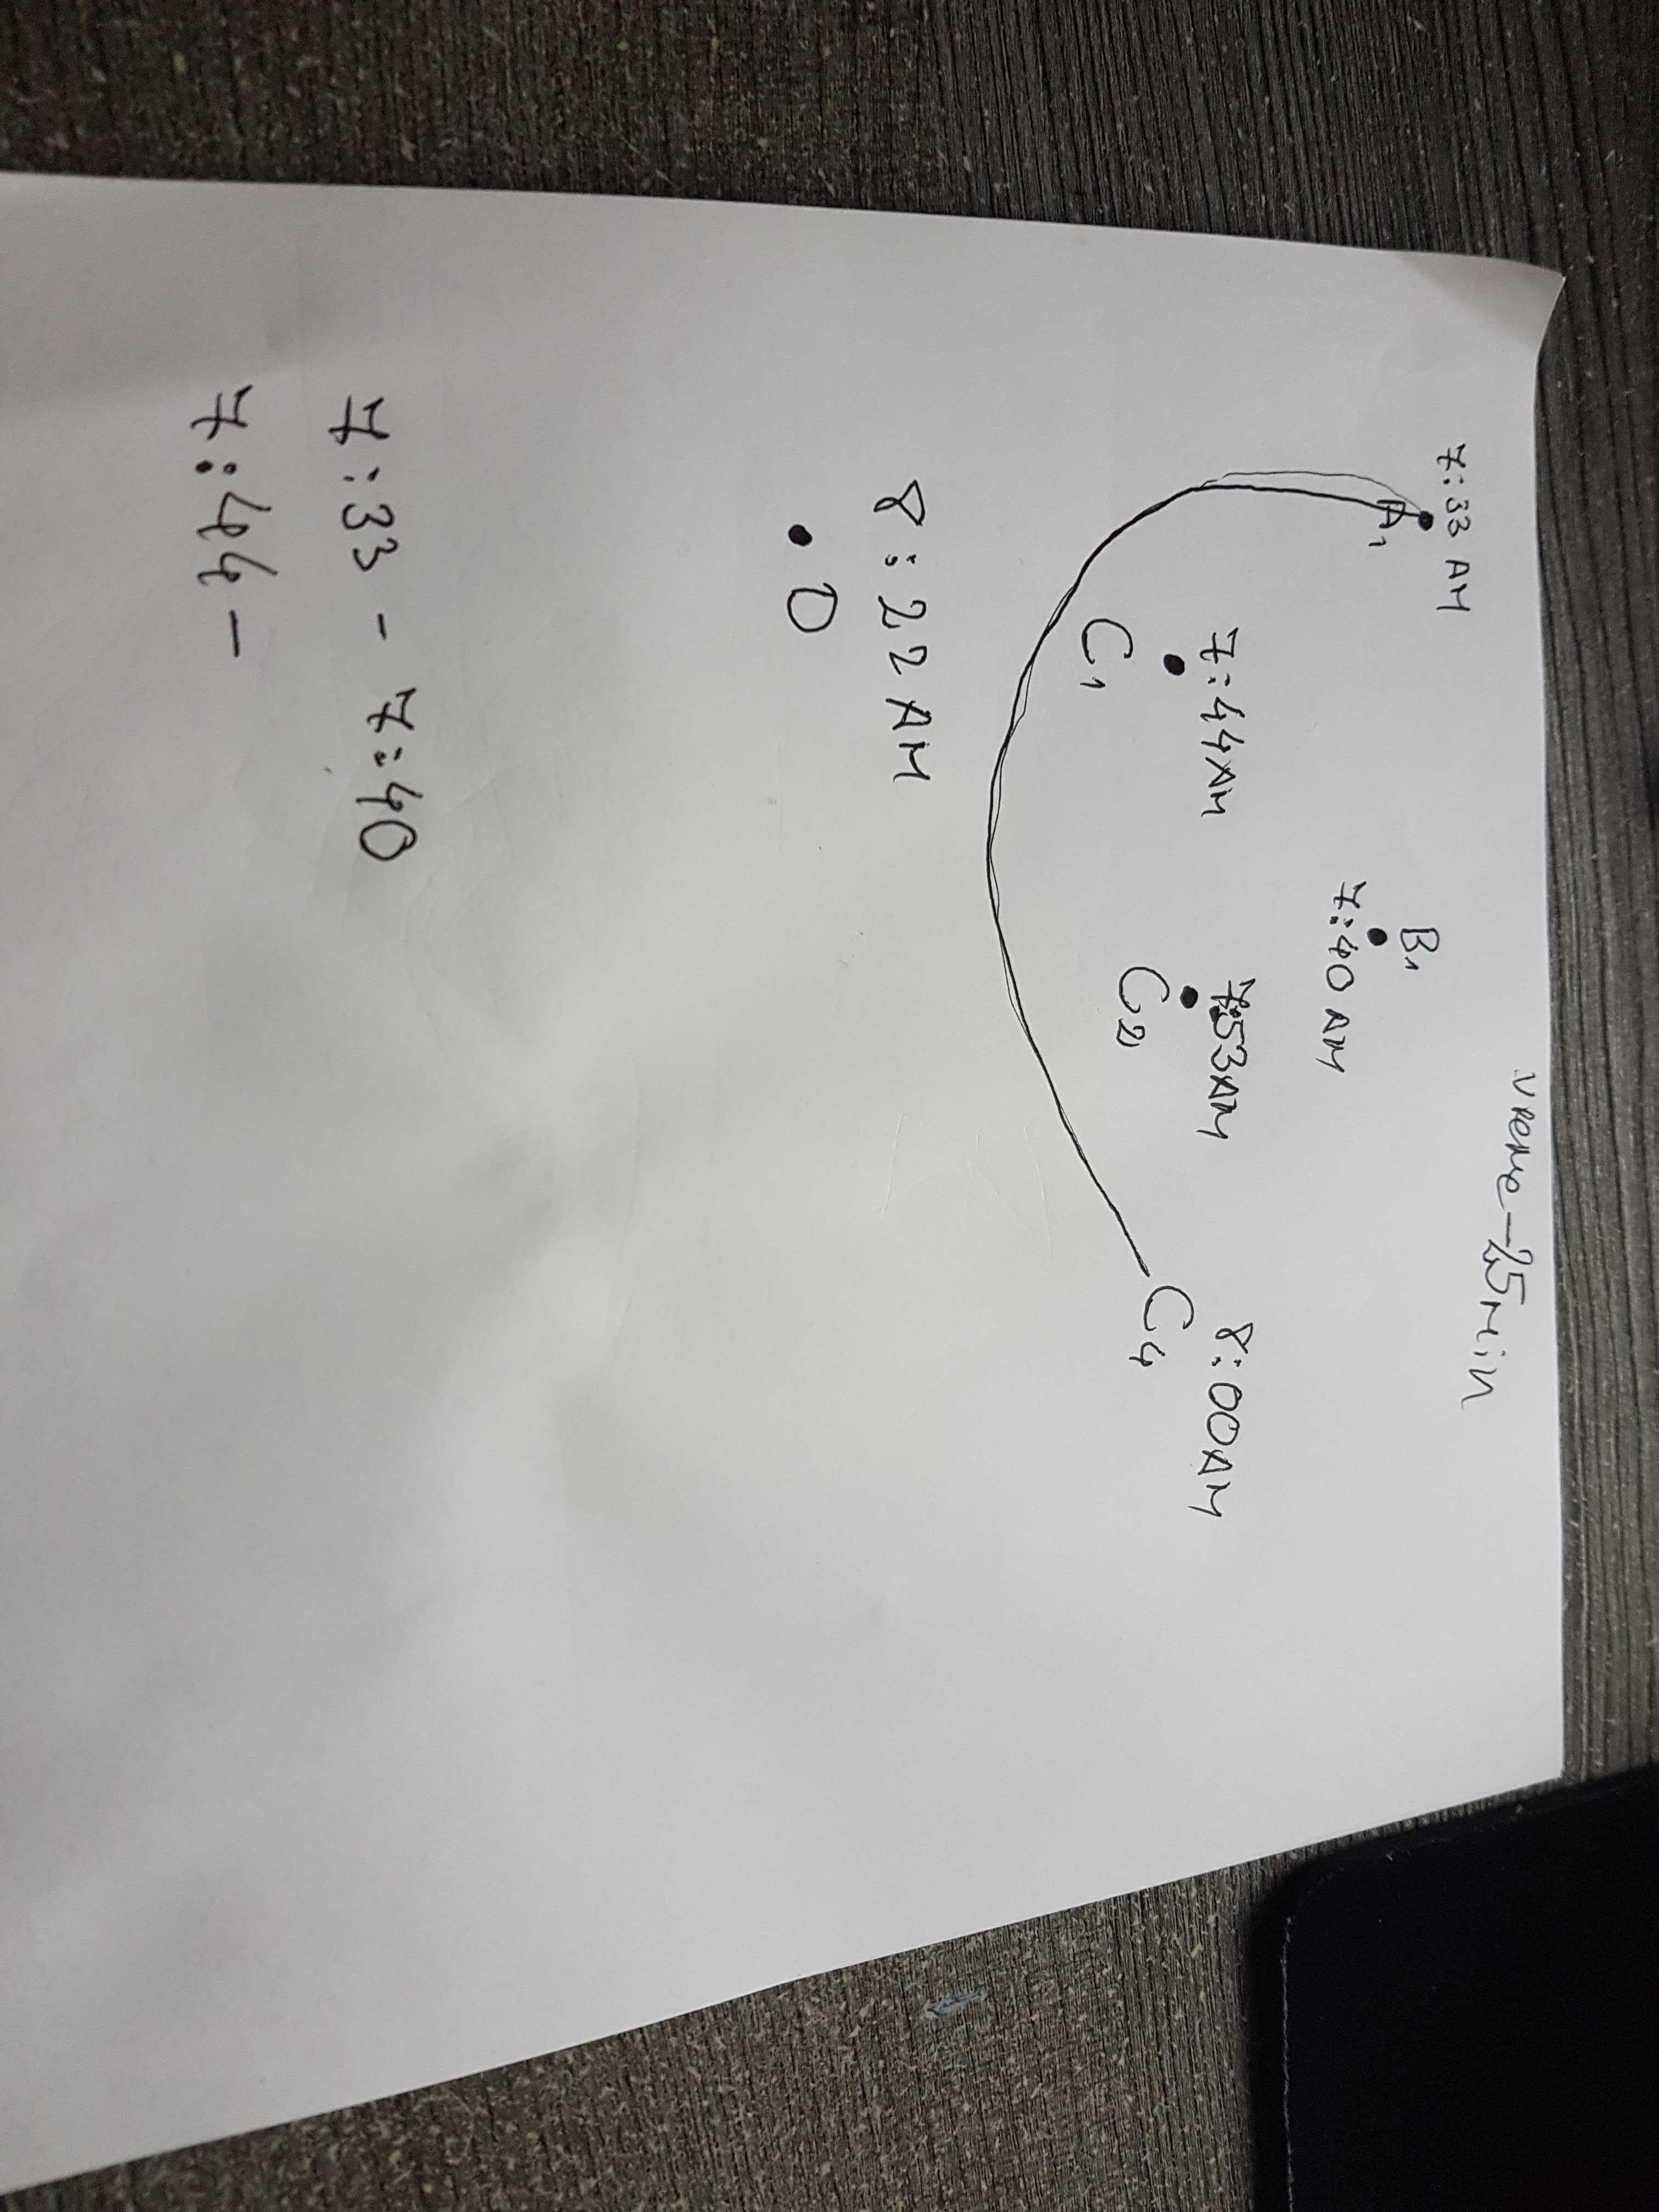 vreme - 25 min
7:33 AM
A1
B1
7:40 AM
7:44 AM
C1
7:53 AM
C2
8:00 AM
C4
8:22 AM
D
7:33 - 7:40
7:44 -